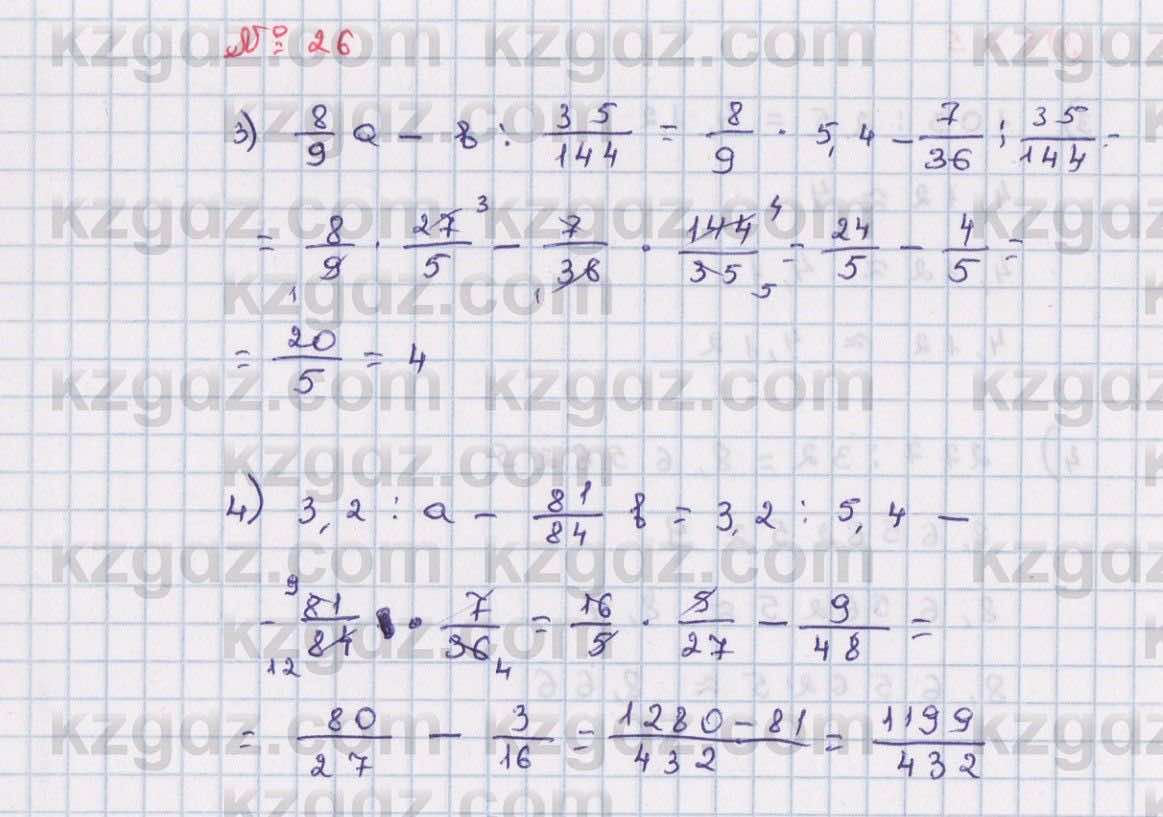 № 26
3) 8/9 a - в : 35/144 = 8/9 · 5,4 - 7/36 : 35/144 =
= 8/9 · 27/5 - 7/36 · 144/35 = 24/5 - 4/5 =
= 20/5 = 4
4) 3,2 : a - 81/84 в = 3,2 : 5,4 -
- 81/84 · 7/36 = 16/5 · 5/27 - 9/48 =
= 80/27 - 3/16 = 1280-81/432 = 1199/432
kzgdz.com